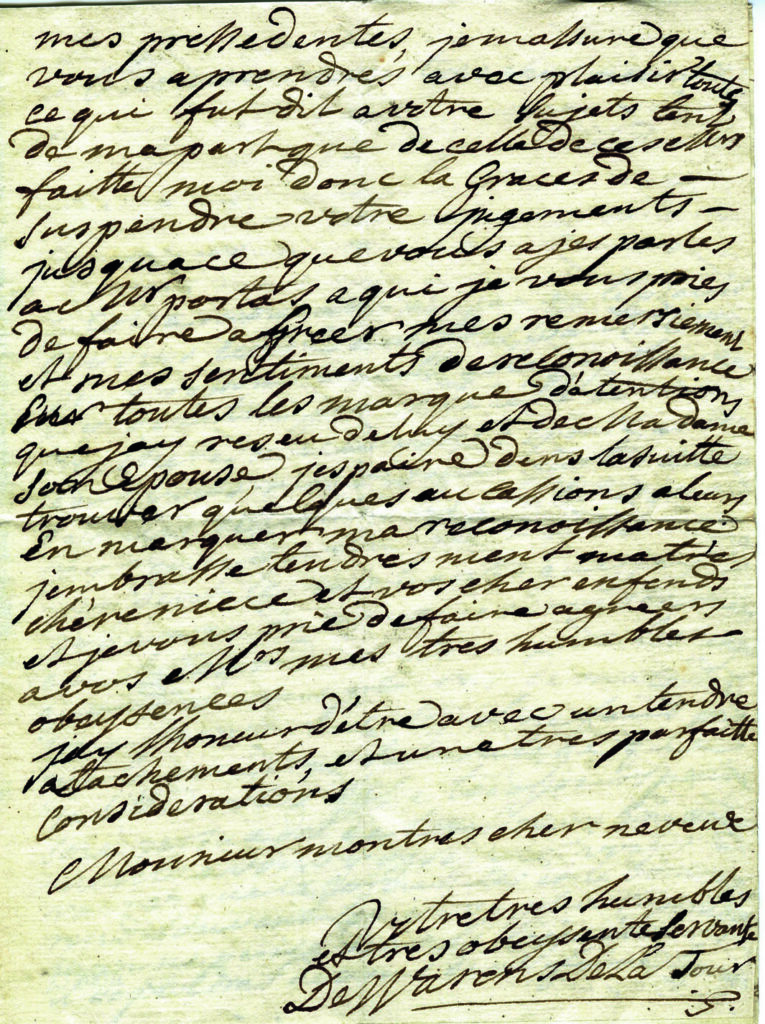 mes pressedentes, jemassure que
vous aprendrés avec plaisir toute
ce qui fut dit avotre sujets tent
de ma part que de celle de ces Mrs
faitte moi donc la Graces de —
suspendre votre jugements —
jusquace que vous ajes parles
a Mr portas a qui je vous pries
de faire agreer mes remersiement
et mes sentiments de reconoissance
sur toutes les marque d'atentions
que jay reseu de luy et de Madame
son Epouse jespaire dens lasuitte
trouver quelques aucassions aleurs
En marquer ma reconoissance
jembrasse tendresment matrés
chére niece et vos cher enfends
et je vous prie de faire agreers
a vos Mrs mes tres humbles
obeyssences
jay lhoneur d'étre avec un tendre
attachements, et une tres parfaitte
Considerations
Monsieur montres cher neveux
Votre tres humbles
et tres obeyssente servante
De Warens De La Tour